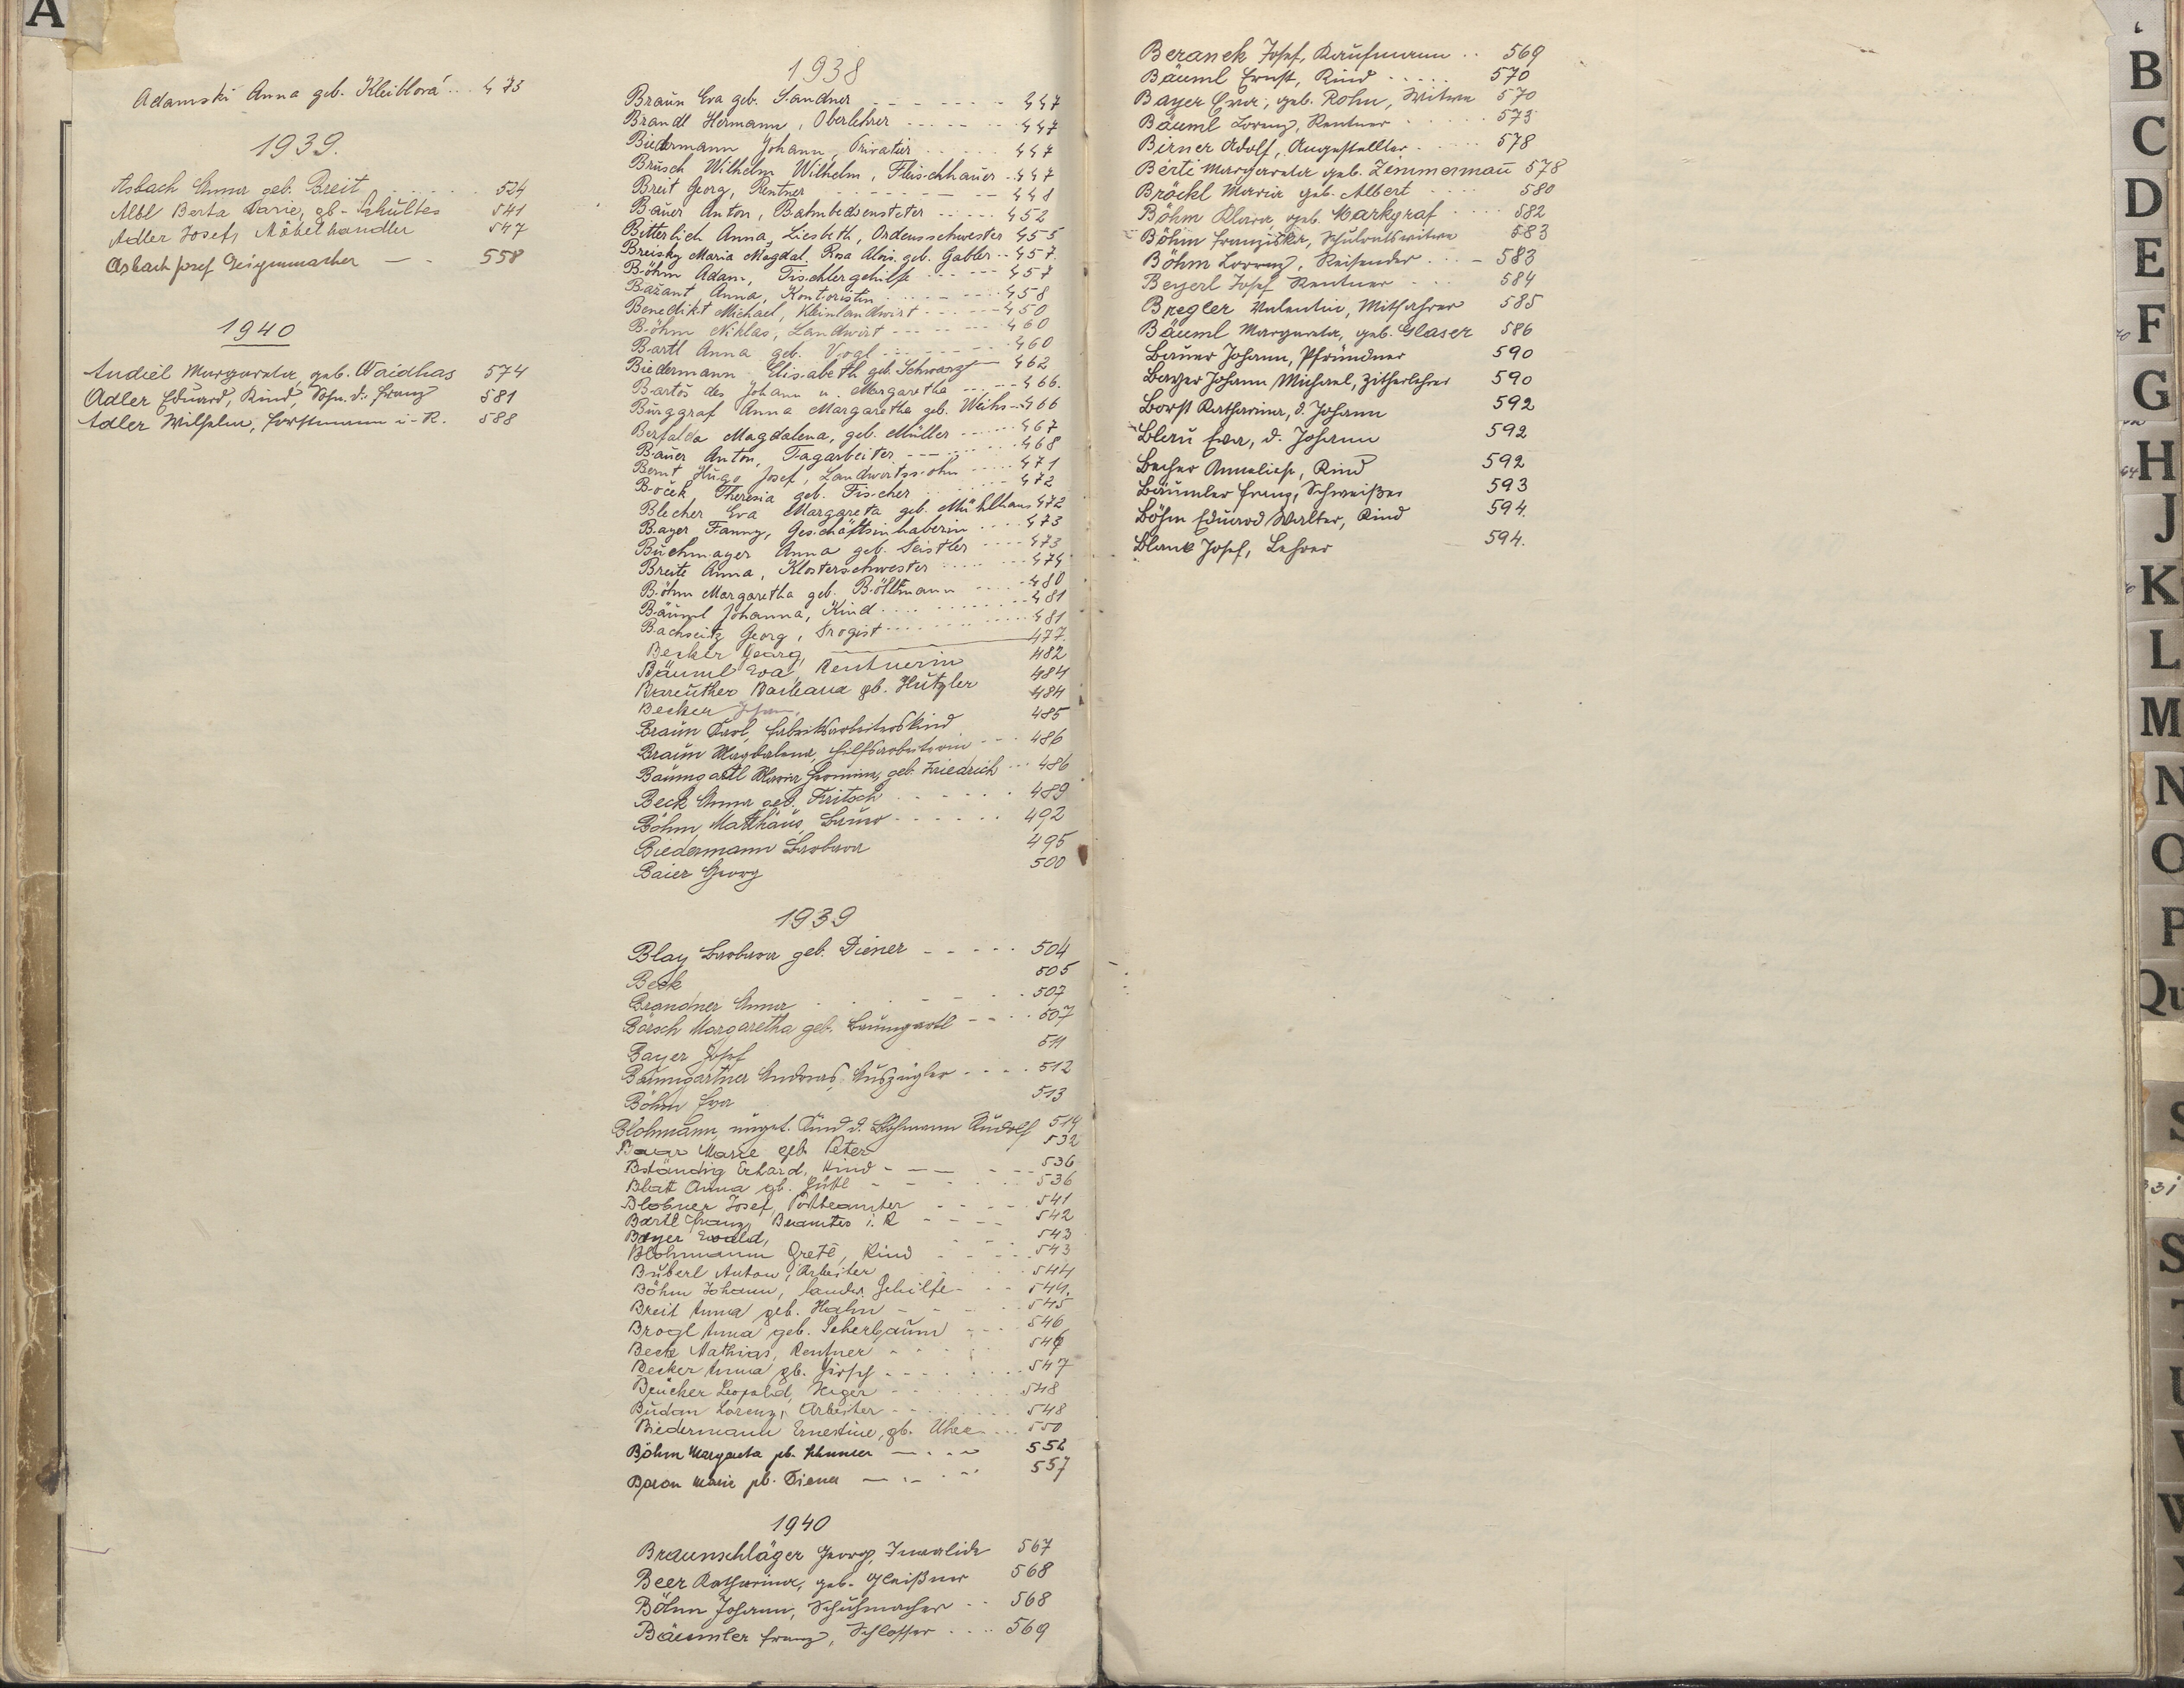 A
Adamski Anna geb. Kleiblová ... 473
1939.
Asbach Anna geb. Breit ..... 524
Albl Berta Marie, gb. Schultes 541
Adler Josef, Möbelhändler 547
Asbach Josef Geigenmacher — . 558
1940
Andiel Margareta, geb. Waidhas 574
Adler Eduard, Kind, Sohn d. Franz 581
Adler Wilhelm, Forstmann i. R. 588
1938
Braun Eva geb. Sandner 447
Brandl Hermann, Oberlehrer 447
Biedermann Johann, Privatier 447
Brusch Wilhelm Wilhelm, Fleischhauer 447
Breit Georg, Rentner 448
Bauer Anton, Bahnbediensteter 452
Bitterlich Anna, Liesbeth, Ordensschwester 455
Breisky Maria Magdal. Rosa Alois. geb. Gabler 457.
Böhm Adam, Tischlergehilfe 457
Bažant Anna, Kontoristin 458
Benedikt Michael, Kleinlandwirt 450
Böhm Niklas, Landwirt 460
Bartl Anna geb. Vogl 460
Biedermann Elisabeth geb. Schwarz 462
Bartoš des Johann u. Margaretha 466.
Burggraf Anna Margaretha geb. Weihs 466
Magdalena, geb. Müller 467
Bauer Anton, Tagarbeiter 468
Bernt Hugo Josef, Landwirtssohn 471
Boček Theresia geb. Fischer 472
Blecher Eva Margareta geb. Mühlhans 472
Bayer Fanny, Geschäftsinhaberin 473
Buchmayer Anna geb. Seistler 473
Breite Anna, Klosterschwester 474
Böhm Margaretha geb. Böllmann 480
Bäuml Johanna, Kind 481
Bachseitz Georg, Drogist 481
Becker Georg, 477.
Bäuml Eva, Rentnerin 482
Bareuther Barbara gb. Hutzler 484
Becker Johann 484
Braun Karl, Fabriksarbeiterskind 485
Braun Magdalena, Hilfsarbeiterin 486
Baumgartl Maria Hermine, geb. Friedrich 486
Beck Anna geb. Fritsch 489
Böhm, Matthäus, Bauer 492
Biedermann Barbara 495
Baier Georg 500
1939
Blay Barbara geb. Diener 504
Beck 505
Brandner Anna 507
Börsch Margaretha geb. Baumgartl 507
Bayer Josef 511
Baumgartner Andreas, Auszügler 512
Böhm Eva 513
Blohmann, unget. Kind d. Blohmann Rudolf 514
Baar Marie geb. Peter 532
Bständig Erhard, Kind 536
Blatt Anna gb. Güttl 536
Blobner Josef, Postbeamter 541
Bartl Franz, Beamter i. R 542
Bayer Ewald, 543
Blohmann Grete, Kind 543
Buberl Anton, Arbeiter 544
Böhm Johann, landw. Gehilfe 544.
Breit Anna geb. Hahn 545
Brogl Anna geb. Scherbaum 546
Beck Mathias, Rentner 546
Becker Anna gb. Hirsch 547
Brücker Leopold, Heger 548
Budan Lorenz, Arbeiter 548
Biedermann Ernestine, gb. Uher 550
Böhm Margareta gb. 552
Baron Marie gb. Diener 557
1940
Braunschläger Georg, Invalide 567
Beer Katharina, geb. Gleißner 568
Böhm Johann, Schuhmacher 568
Bäumler Franz, Schlosser 569
Beranek Josef, Kaufmann .. 569
Bäuml Ernst, Kind 570
Bayer Eva, geb. Rohm, Witwe 570
Bäuml Lorenz, Rentner 573
Birner Adolf, Angestellter 578
Berti Margareta geb. Zimmermann 578
Bröckl Maria geb. Albert 580
Böhm Klara geb. Markgraf 582
Böhm Franziska, Schulratswitwe 583
Böhm Lorenz, Reisender 583
Beyerl Josef Rentner 584
Bregler Valentin, Mitfahrer 585
Bäuml Margareta, geb. Glaser 586
Bauer Johann, Pfründner 590
Bayer Johann Michael, Zitherlehrer 590
Borst Katharina, d. Johann 592
Blau Eva, d. Johann 592
Becher Anneliese, Kind 592
Bäumler Franz, Schweißer 593
Böhm Eduard Walter, Kind 594.
Blank Josef, Lehrer 594.
B
C
D
E
F
G
H
J
K
L
M
N
O
P
Qu
S